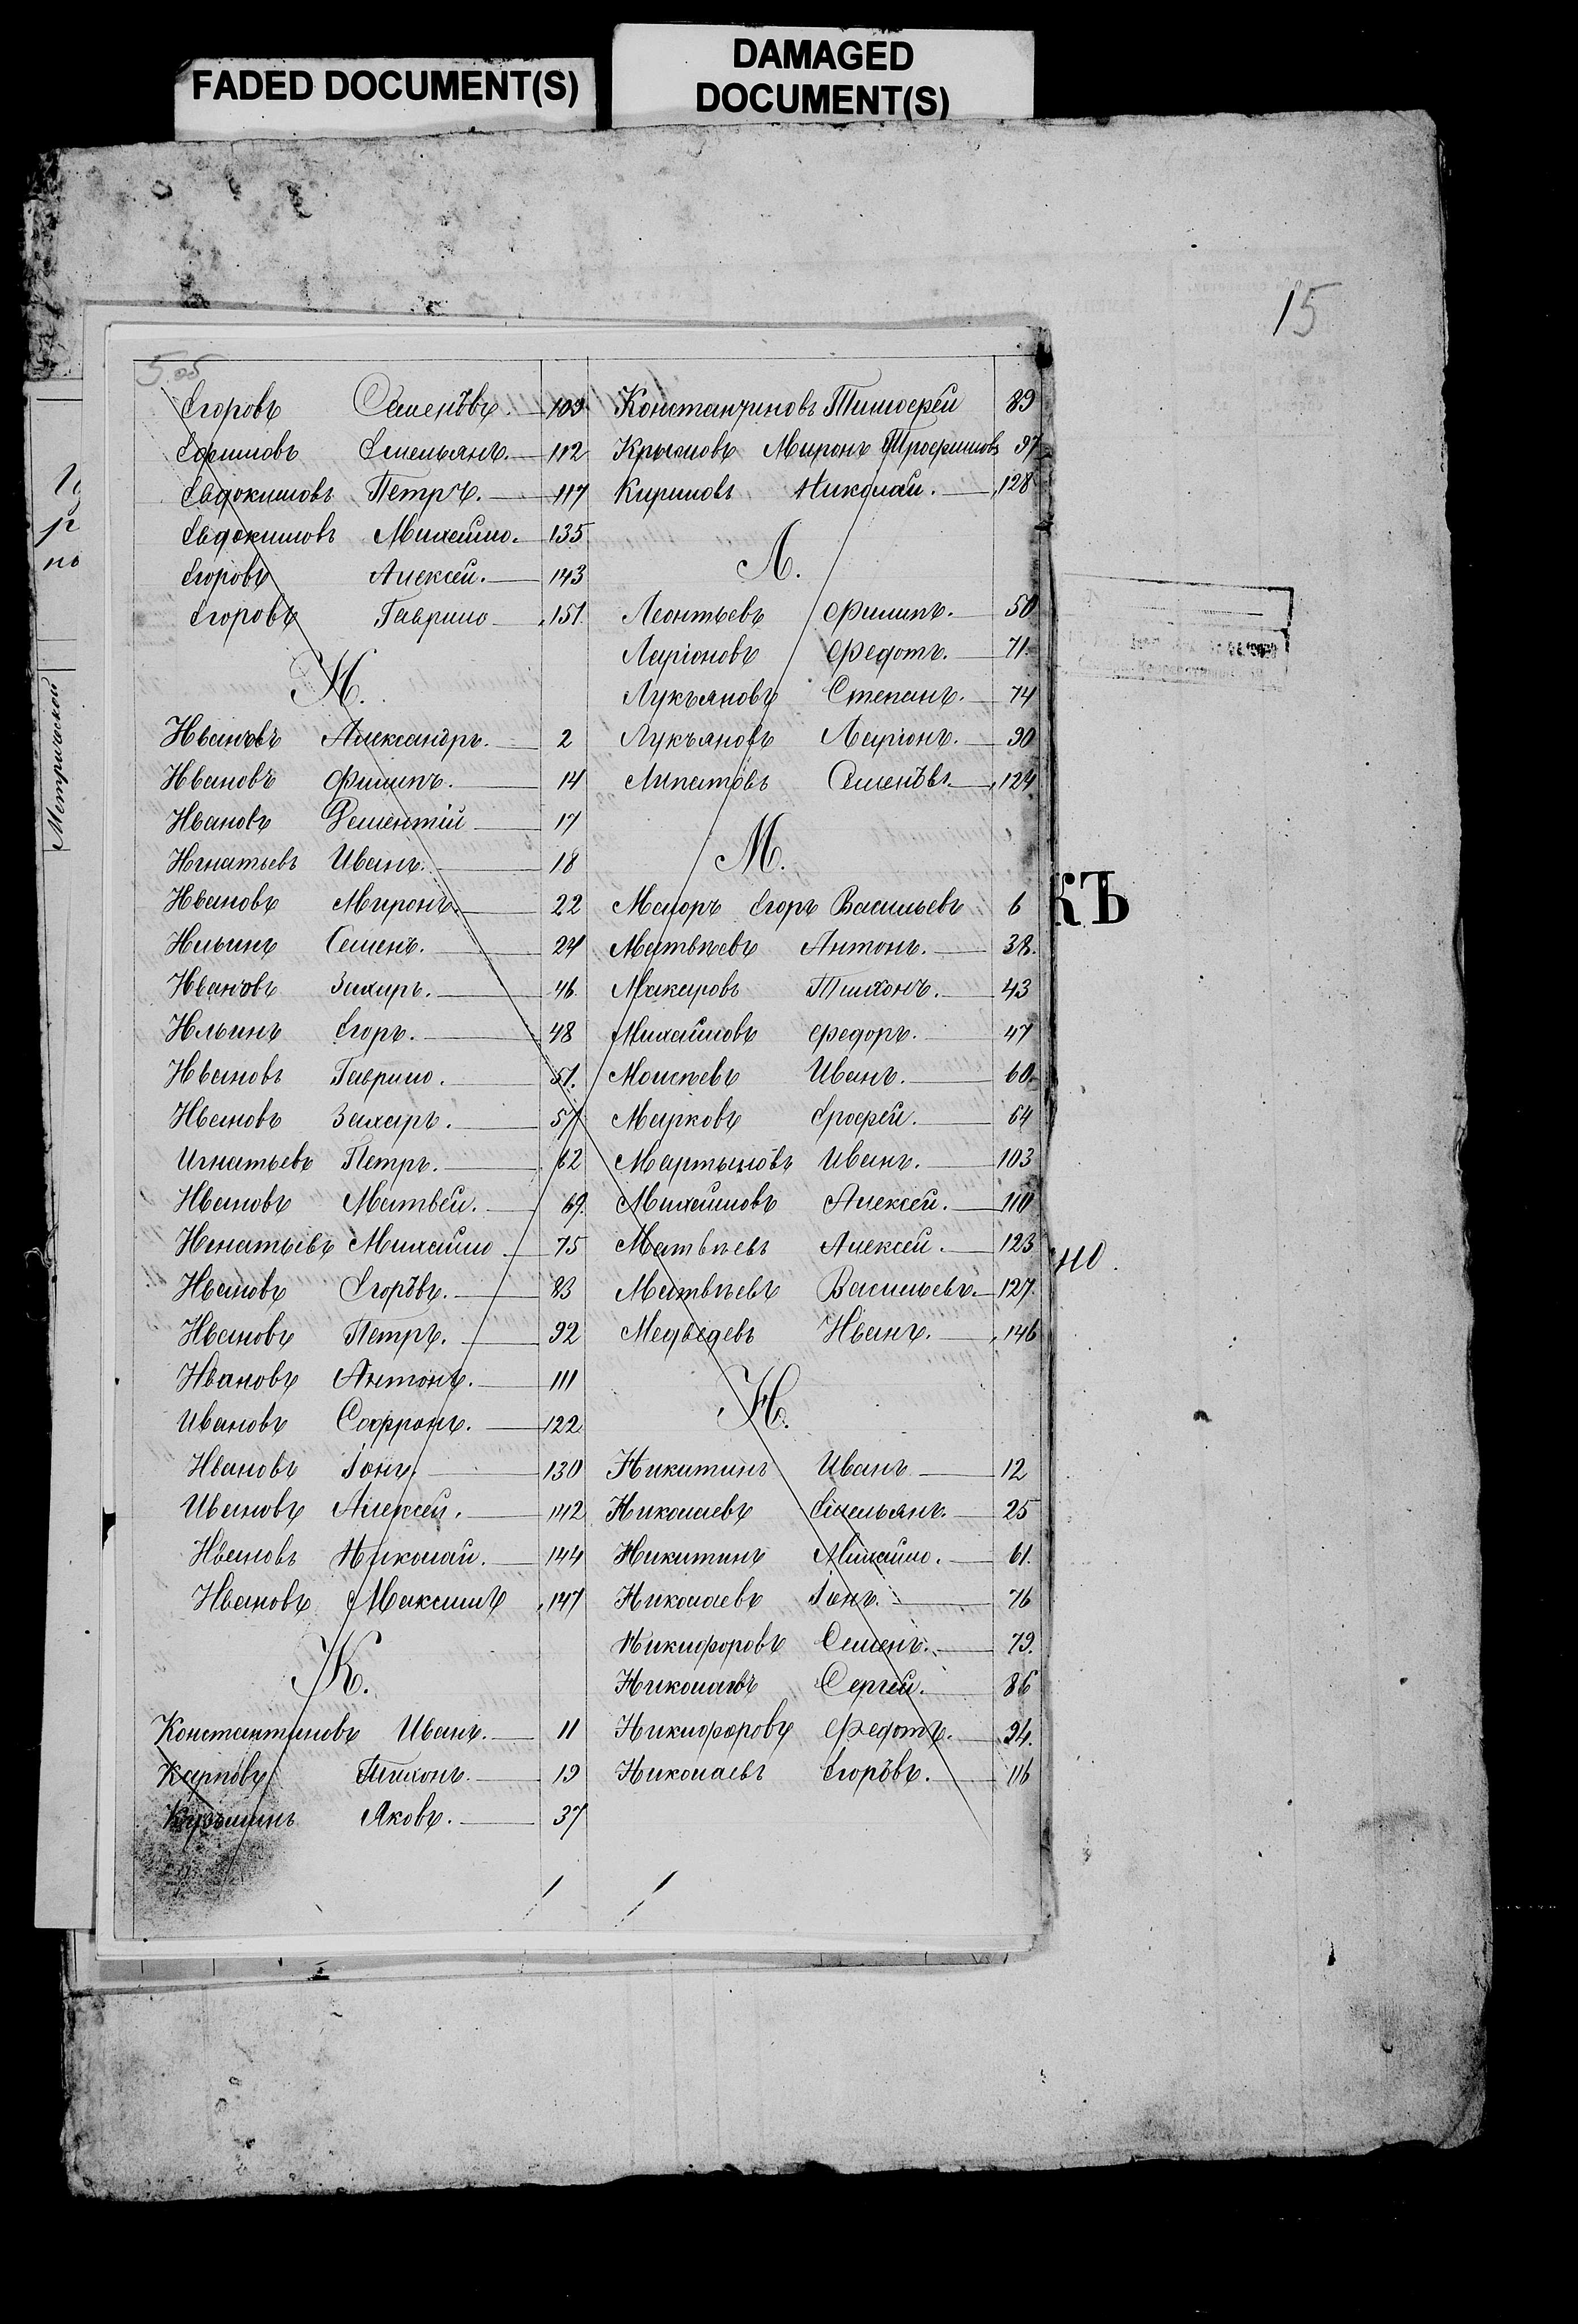 FADED DOCUMENT(S)
DAMAGED
DOCUMENT(S)
15
5 об
Егоровъ Семенъвъ. 109
Ефимовъ Емельянъ. 112
Евдокимовъ Петръ. 117
Евдокимовъ Михайло. 135
Егоровъ Алексей. 143
Егоровъ Гаврило 151.
И.
Ивановъ Александръ. 2
Ивановъ Филипъ. 14
Ивановъ Дементій 17
Игнатьевъ Иванъ. 18
Ивановъ Миронъ. 22
Ильинъ Семенъ. 24
Ивановъ Захаръ. 46.
Ильинъ Егоръ. 48
Ивановъ Гаврило. 51.
Ивановъ Захаръ. 57
Игнатьевъ Петръ. 62
Ивановъ Матвей. 69.
Игнатьевъ Михайло 75
Ивановъ Егоръвъ. 83
Ивановъ Петръ. 92
Ивановъ Антонъ. 111
Ивановъ Софронъ. 122
Ивановъ Іонъ. 130
Ивановъ Алексей. 142
Ивановъ Николай. 144
Ивановъ Максимъ 147
К.
Константиновъ Иванъ. 11
Карповъ Тихонъ. 19
Яковъ. 37
Константиновъ Тимофей 89
Миронъ Трофимовъ 97
Кириловъ Николай. 128
Л.
Леонтьевъ Филипъ. 50
Ларіоновъ Федотъ. 71.
Лукъяновъ Степанъ. 74
Лукъяновъ Ларіонъ. 90
Липатовъ Семенъвъ. 124
М.
Маіоръ Егоръ Васильевъ 6
Матвѣевъ Антонъ. 38.
Макаровъ Тихонъ. 43
Михайловъ Федоръ. 47
Моисѣевъ Иванъ. 60.
Марковъ Ерофей. 64
Мартыновъ Иванъ. 103
Михайловъ Алексей. 110
Матвѣевъ Алексей. 123
Матвѣевъ Васильевъ. 127.
Медведевъ Иванъ. 146
Н.
Никитинъ Иванъ 12
Николаевъ Емельянъ. 25
Никитинъ Михайло. 61.
Николаевъ Іонъ. 76
Никифоровъ Семенъ. 79.
Николаевъ Сергей. 86
Никифоровъ Федотъ. 94.
Николаевъ Егоръвъ. 116
Метрической
по
КЪ